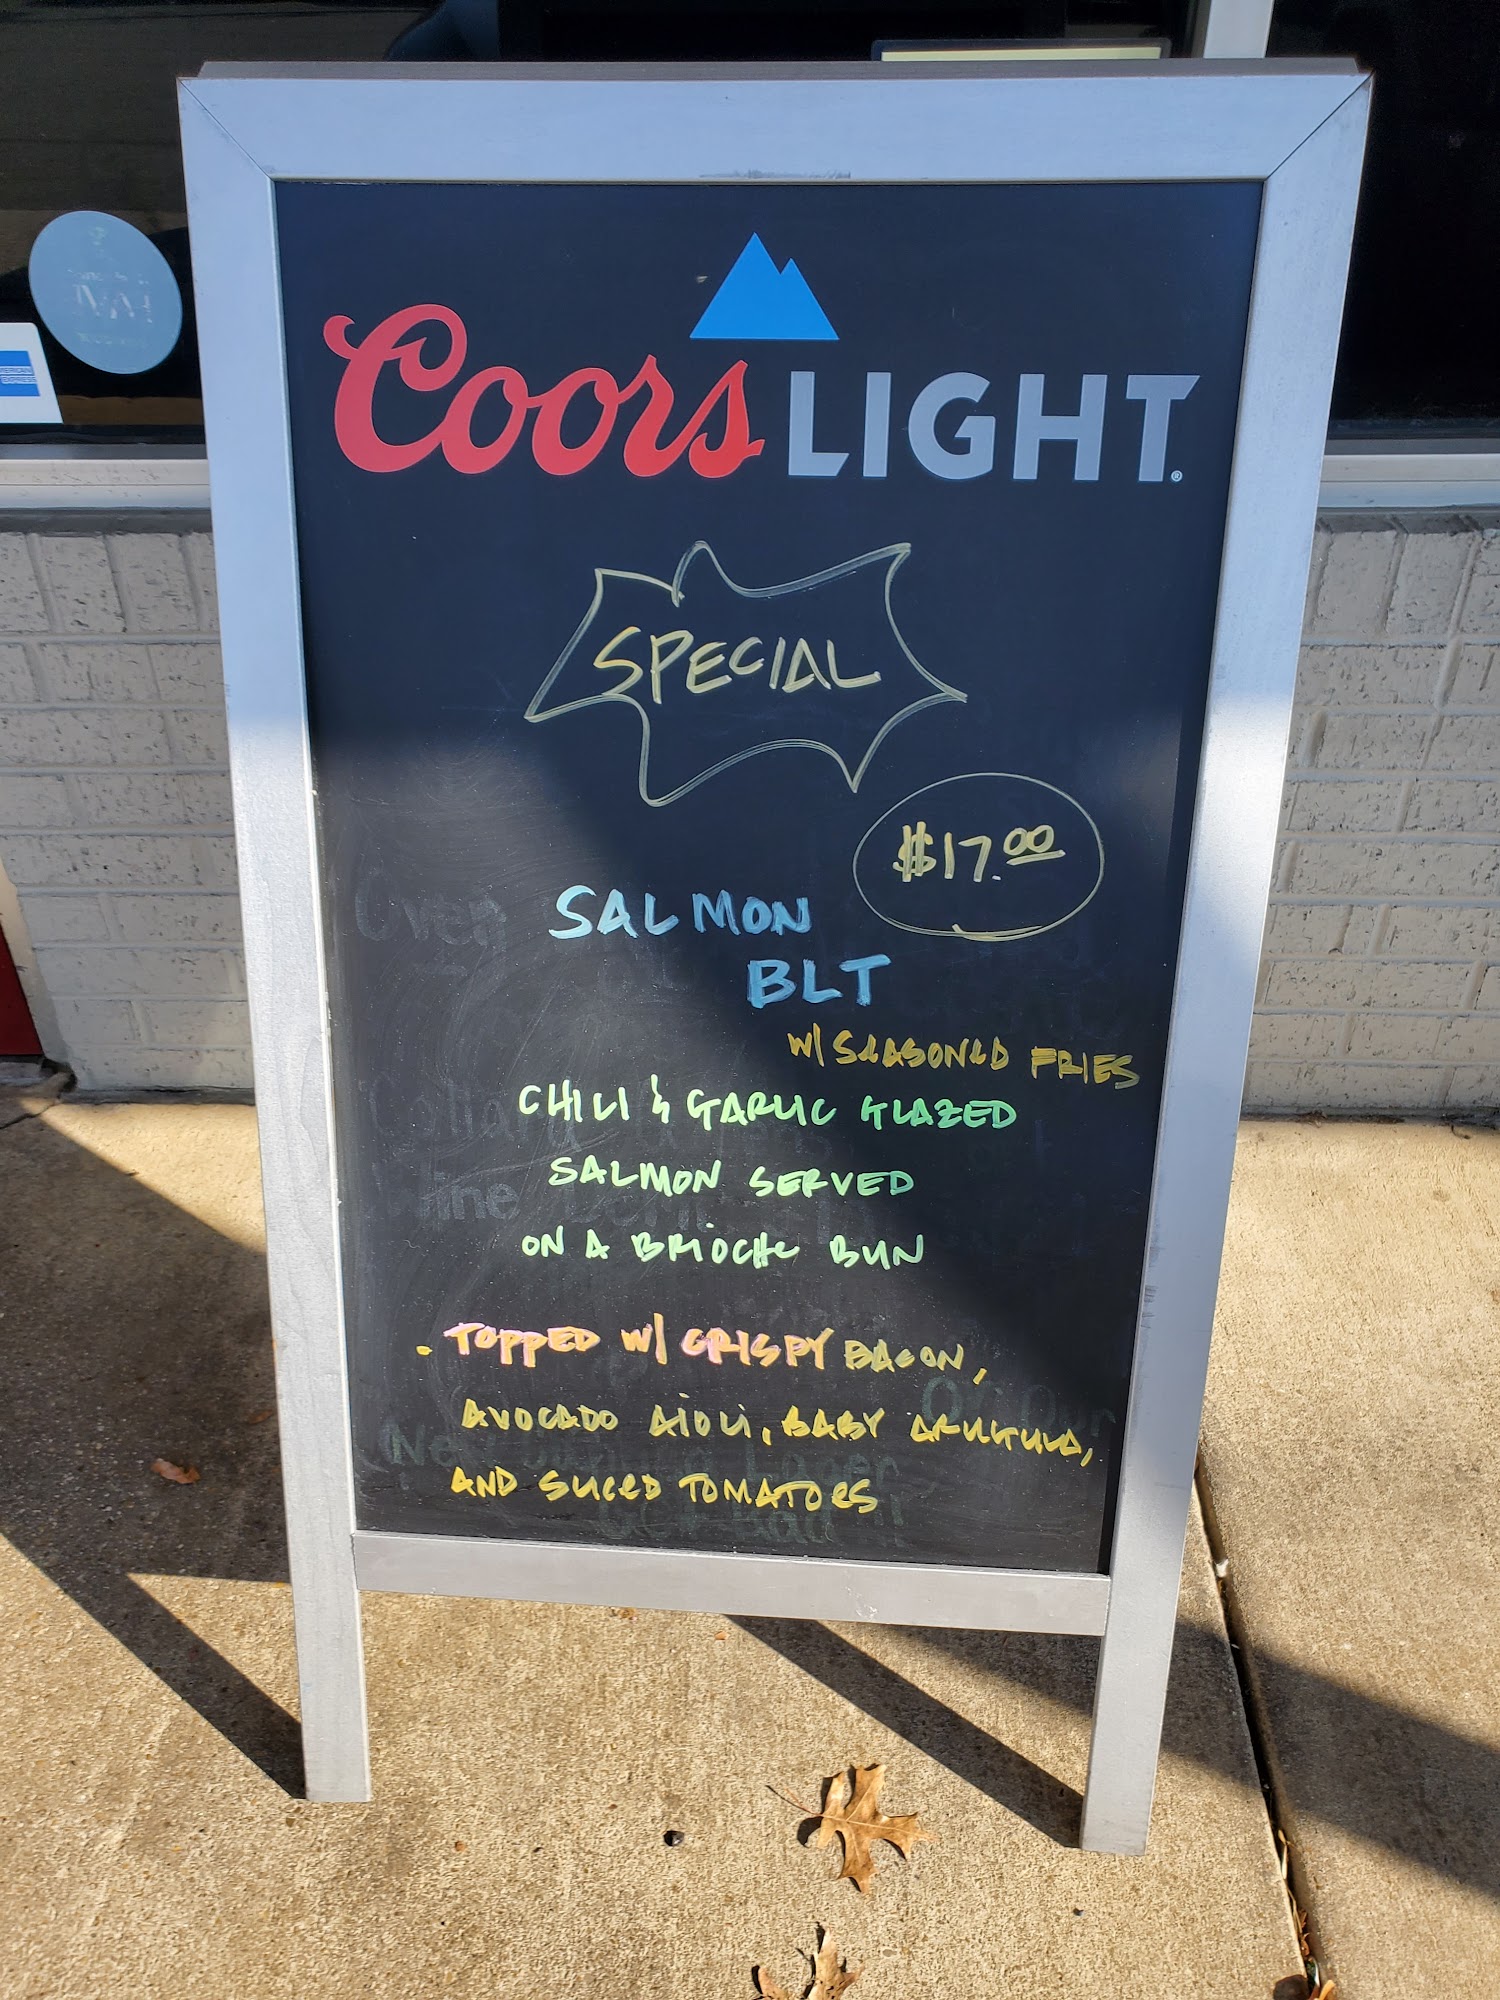 Coors LIGHT
SPECIAL
$17.00
SALMON
BLT
W/ SEASONED FRIES
CHILI & GARLIC GLAZED
SALMON SERVED
ON A BRIOCHE BUN
. TOPPED W/ CRISPY BACON,
AVOCADO AIOLI, BABY ARUGULA,
AND SLICED TOMATOES
AMERICAN
EXPRESS